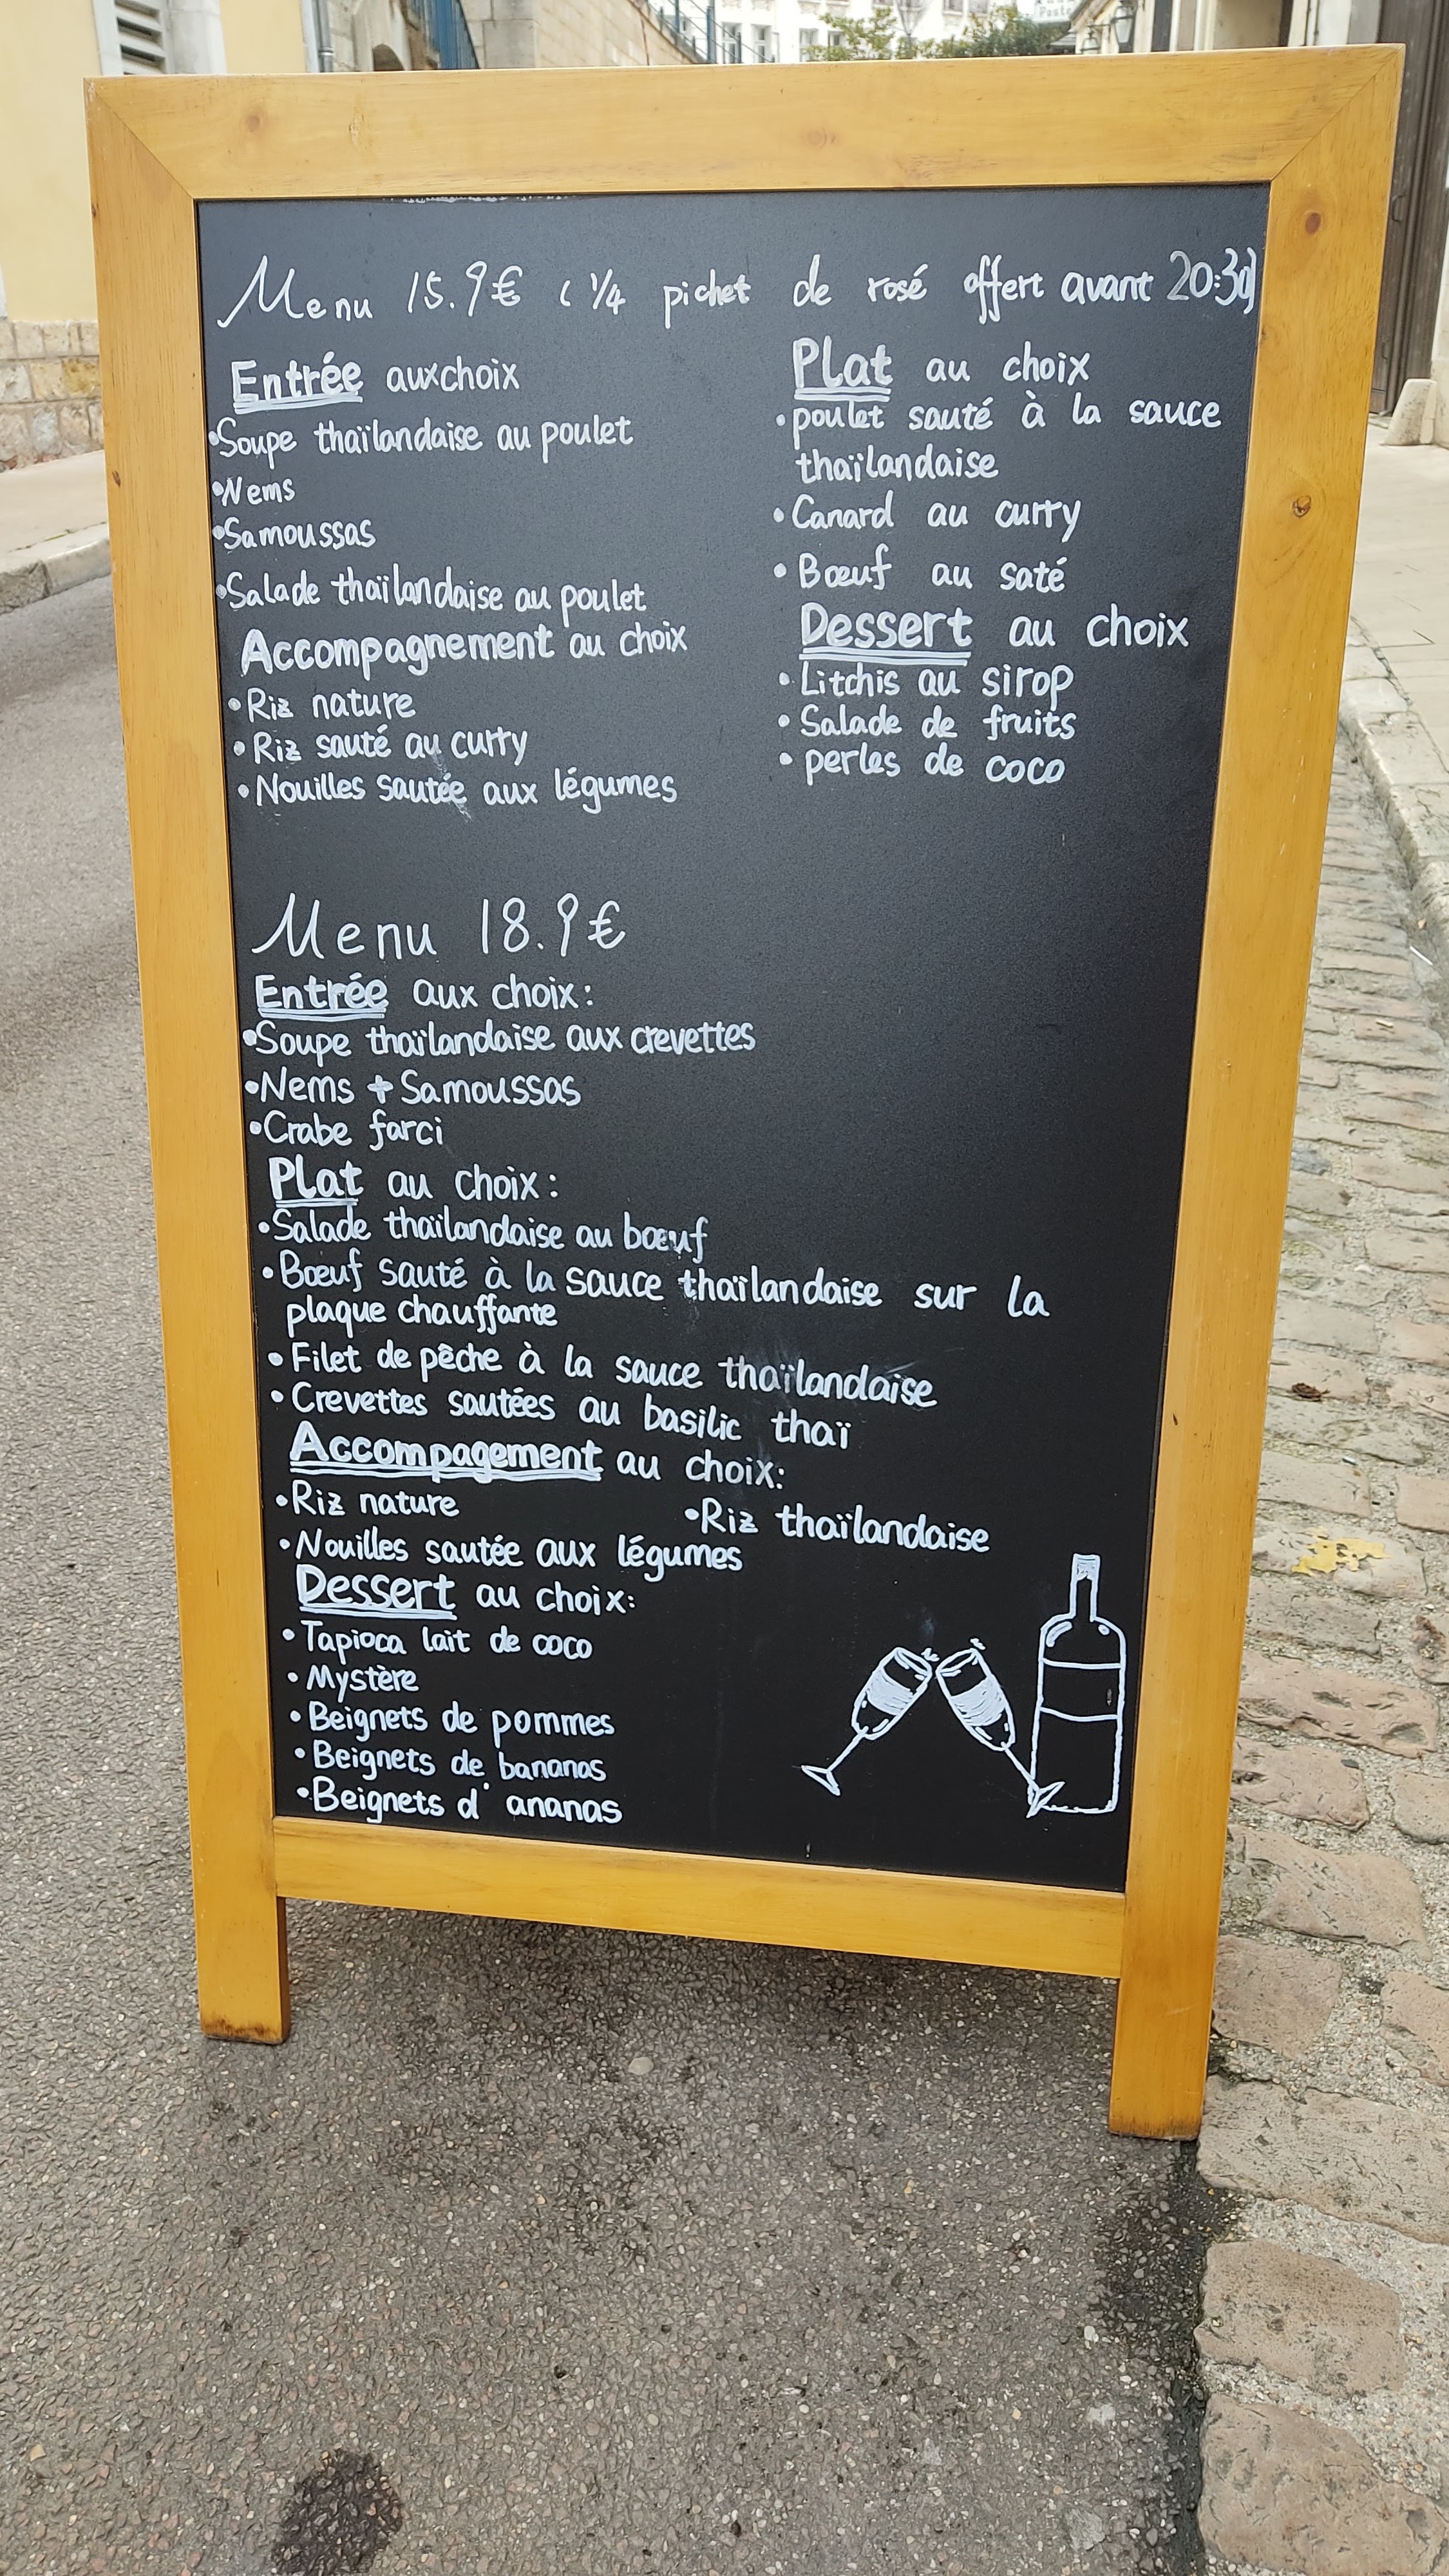 Menu 15.9€ ( 1/4 pichet de rosé offert avant 20:30)
Entrée auxchoix
•Soupe thaïlandaise au poulet
•Nems
•Samoussas
•Salade thaïlandaise au poulet
Accompagnement au choix
•Riz nature
•Riz sauté au curry
•Nouilles sautée aux légumes
Plat au choix
•poulet sauté à la sauce
thaïlandaise
•Canard au curry
•Bœuf au saté
Dessert au choix
•Litchis au sirop
•Salade de fruits
•perles de coco
Menu 18.9€
Entrée aux choix:
•Soupe thaïlandaise aux crevettes
•Nems + Samoussas
•Crabe farci
Plat au choix:
•Salade thaïlandaise au bœuf
•Bœuf sauté à la sauce thaïlandaise sur la
plaque chauffante
•Filet de pêche à la sauce thaïlandaise
•Crevettes sautées au basilic thaï
Accompagement au choix:
•Riz nature •Riz thaïlandaise
•Nouilles sautée aux légumes
Dessert au choix:
•Tapioca lait de coco
•Mystère
•Beignets de pommes
•Beignets de bananas
•Beignets d' ananas